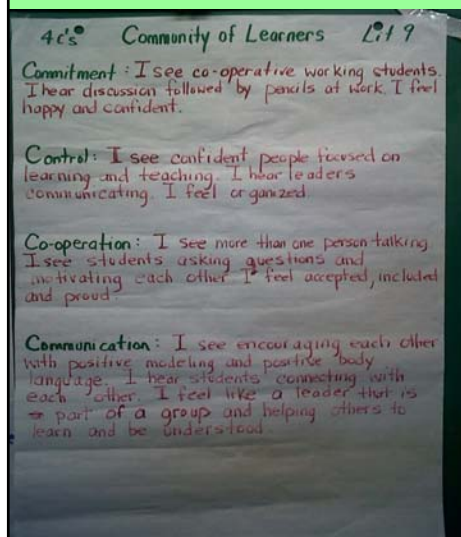 4c's Community of Learners Lit 9
Commitment: I see co-operative working students.
I hear discussion followed by pencils at work. I feel
happy and confident.
Control: I see confident people focused on
learning and teaching. I hear leaders
communicating. I feel organized.
Co-operation: I see more than one person talking.
I see students asking questions and
motivating each other I feel accepted, included
and proud.
Communication: I see encouraging each other
with positive modeling and positive body
language. I hear students connecting with
each other. I feel like a leader that is
part of a group and helping others to
learn and be understood.